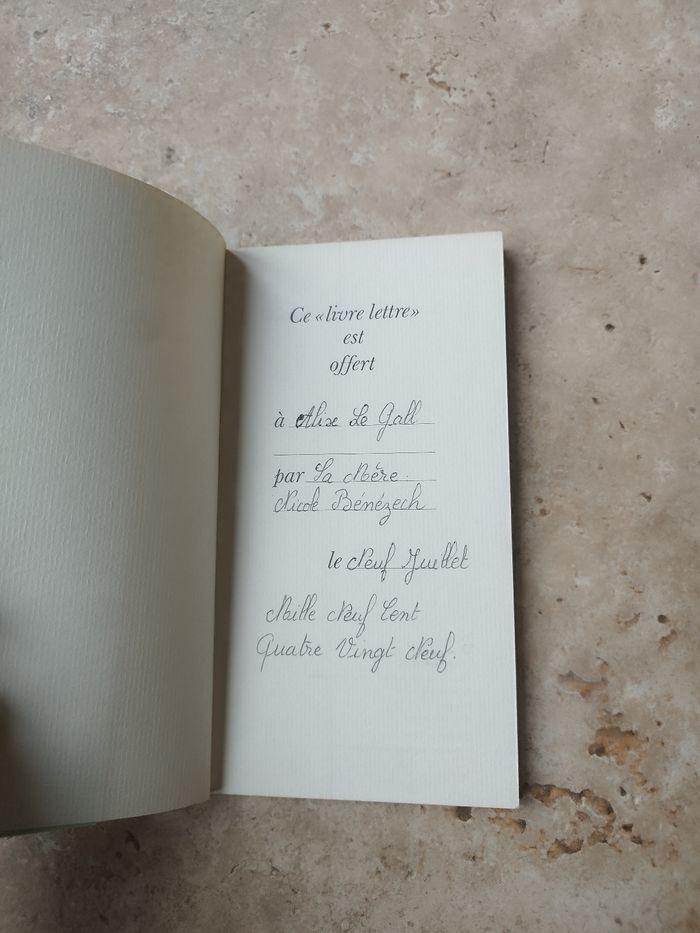 Ce «livre lettre»
est
offert
à Alix Le Gall
par Sa Mère.
Nicole Bénézech
le Neuf Juillet
Mille Neuf Cent
Quatre Vingt Neuf.